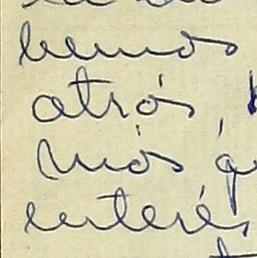 bemos
atrás,
más q
interés